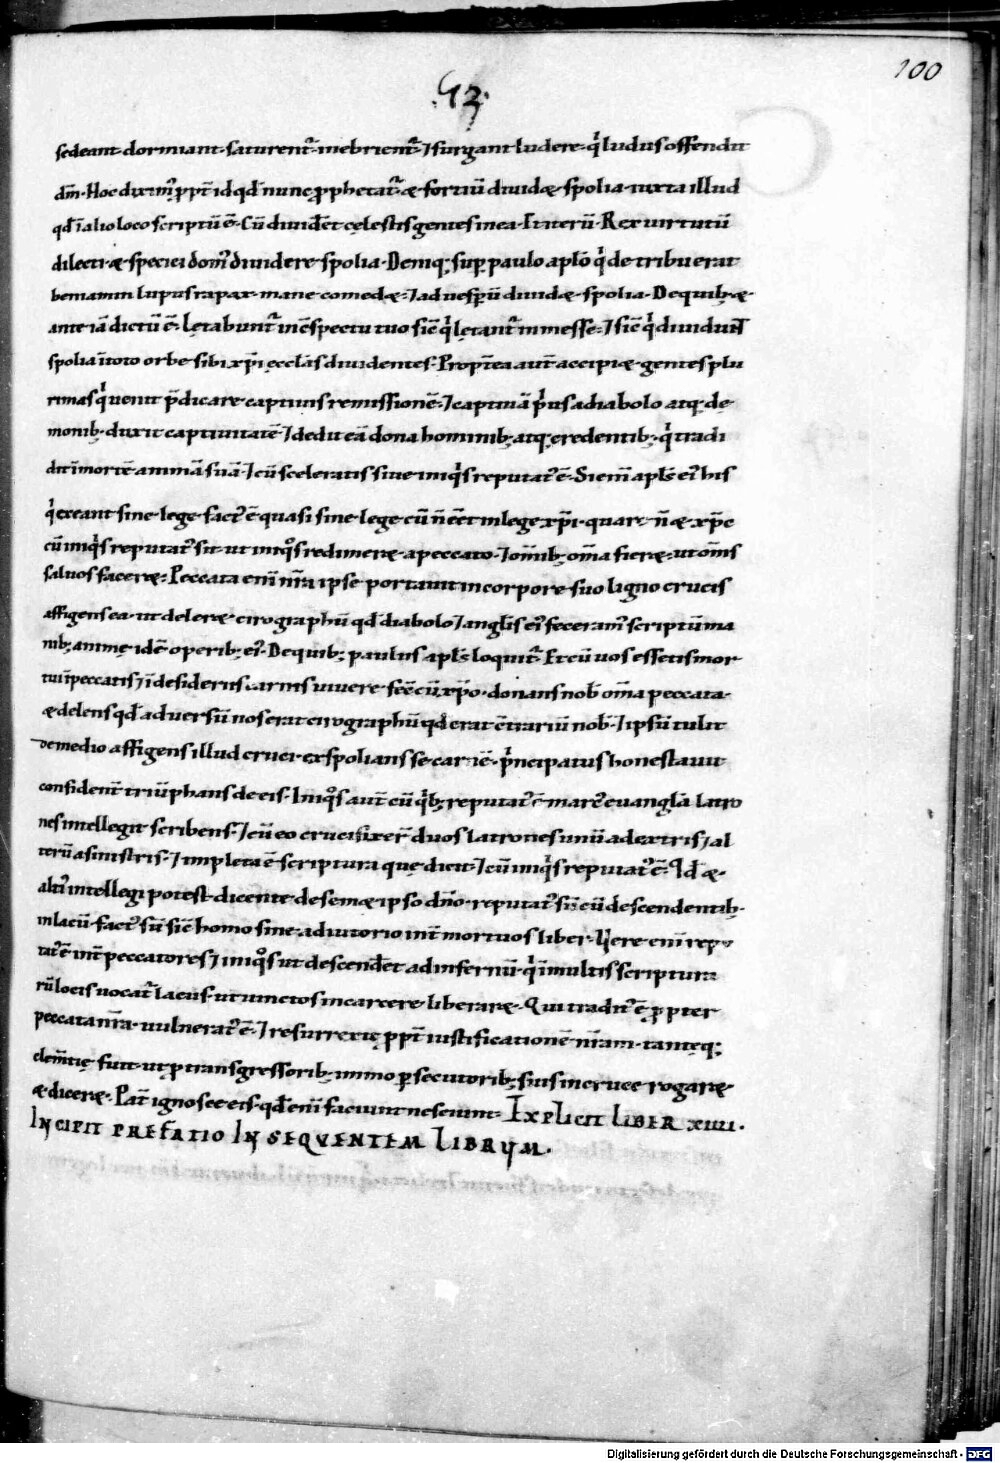 100
53.
sedeant· dormiant· saturent᷑· inebrient᷑· ⁊ surgant ludere· q̇ ludus offendit
dm̄· Hoc diximꝰ ꝓpt̄ id qd̄ nunc ꝓphetat᷑· & fortiū diuidet spolia· iuxta illud
qd̄ ī alio loco scriptū ē· Cū diuidet cęlestis gentes in ea· Et iterū· Rex uirtutū
dilecti & speciei domꝰ diuidere spolia· Deniq; suꝑ paulo aplō q̇ de tribu erat
beniamin lupus rapax· mane comedet· ⁊ ad uesꝑū diuidet spolia· De quib; &
ante iā dictū ē· Lętabunt᷑ in c̄spectu tuo sic̄ q̇ lętant᷑ in messe· ⁊ sic̄ q̇ diuidunt
spolia ī toto orbe sibi xp̄i ecclas diuidentes· Propt̄ea aut̄ accipiet gentes plu
rimas q̇ uenit p̄dicare captiuis remissionē· ⁊ captiuā pͥus a diabolo atq; dę
monib; duxit captiuitatē ⁊ dedit eā dona hominib; atq; credentib;· q̇ tradi
dit ī mortē animā suā· ⁊ cū sceleratis siue iniqͥs reputatꝰ ē· Sic eni aplꝰ eiꝰ his
q̇ erant sine lege· factꝰ ē quasi sine lege cū n̄ eēt in lege xp̄i· quare n̄ & xp̄c
cū iniqͥs reputatꝰ sit· ut iniqͦs redimeret a peccato· ⁊ om̄ib; om̄a fieret· ut om̄s
saluos faceret· Peccata eni nr̄a ipse portauit in corpore suo ligno crucis
affigens ea· ut deleret cirographū qd̄ diabolo ⁊ anglis eiꝰ feceramꝰ scriptū ma
nib; animę idē operib; eiꝰ· De quib; paulus aplꝰ loquit᷑· Et cū uos essetis mor
tui ī peccatis ⁊ ī desideriis carnis uiuere fēc cū xp̄o· donans nob̄ om̄a peccata·
& delens qd̄ aduersū nos erat cirographū qd̄ erat c̄trariū nob̄· ⁊ ipsū tulit
de medio affigens illud cruci· exspolians se carnē· pͥncipatus honestauit
confident̄ triūphans de eis· Iniqͦs aut̄ cū qͥb; reputatꝰ ē marcꝰ euangla latro
nes intellegit scribens· ⁊ cū eo crucifixer̄ duos latrones unū a dextris ⁊ al
terū a sinistris· ⁊ impleta ē scriptura quę dicit· ⁊ cū iniqͥs reputatꝰ ē· Qd̄ &
altꝰ intellegi potest· dicente de semet ipso dn̄o· reputatꝰ sū cū descendentib;
in lacū· factꝰ sū sic̄ homo sine adiutorio int̄ mortuos liber· Uere eni repu
tatꝰ ē int̄ peccatores ⁊ iniqͦs ut descendet ad infernū· q̇ ī multis scriptura
rū locis uocat᷑ lacus· ut uinctos in carcere liberaret· Qui traditꝰ ē ꝓpter
peccata nr̄a· uulneratꝰ ē· ⁊ resurrexit ꝓpt̄ iustificationē nr̄am· tantęq;
clem̄tię fuit ut ꝓ transgressorib; immo ꝑsecutorib; suis in cruce rogaret
& diceret· Pat̄ ignosce eis· qd̄ eni faciunt nesciunt· Explicit Liber xiiii.
Incipit prefatio in sequentem librum.